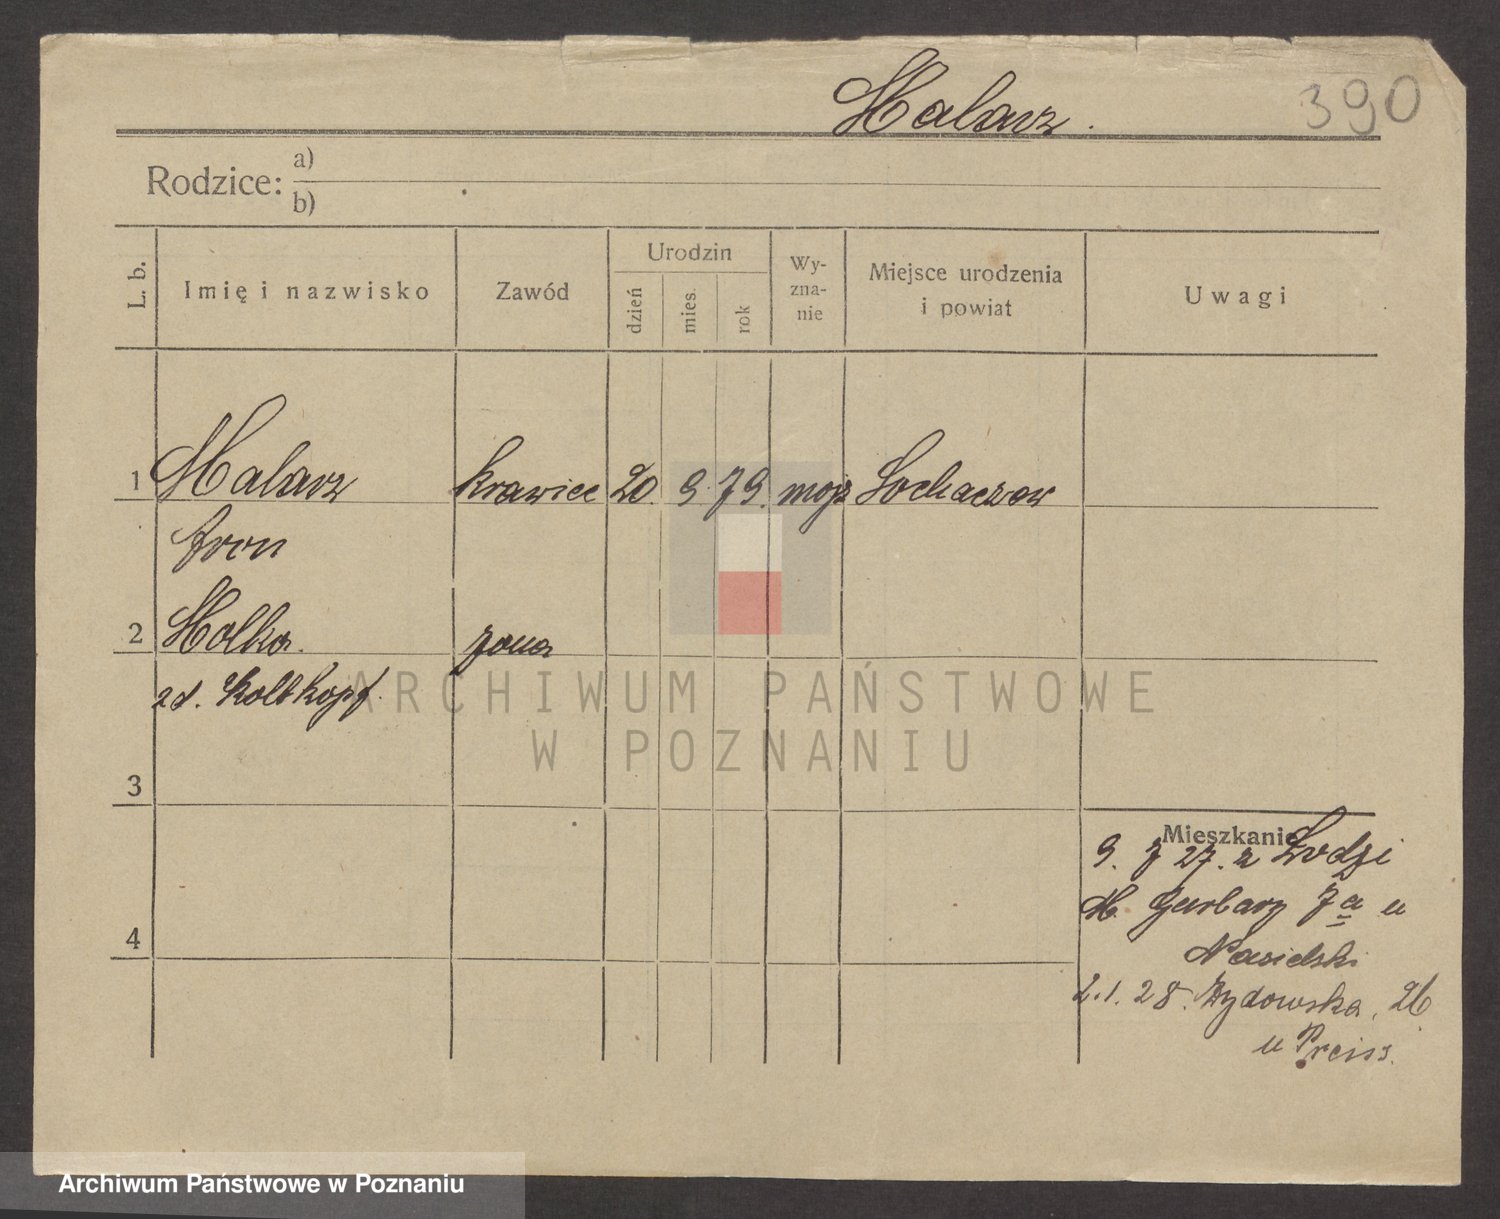 Malarz.
390
Rodzice:
a)
b)
L. b.
Imię i nazwisko
Zawód
Urodzin
dzień
mies.
rok
Wy-
zna-
nie
Miejsce urodzenia
i powiat
Uwagi
1 Malarz krawiec 20. 9. 79. mojż Sochaczew
Aron
2 Malka. żona
zd. Kolbkopf.
3
Mieszkanie
9. 7 27. z Łodzi
M. Garbary 7a u
Nasielski
4
2.1.28. Żydowska, 26
u Preiss.
ARCHIWUM PAŃSTWOWE
W POZNANIU
Archiwum Państwowe w Poznaniu